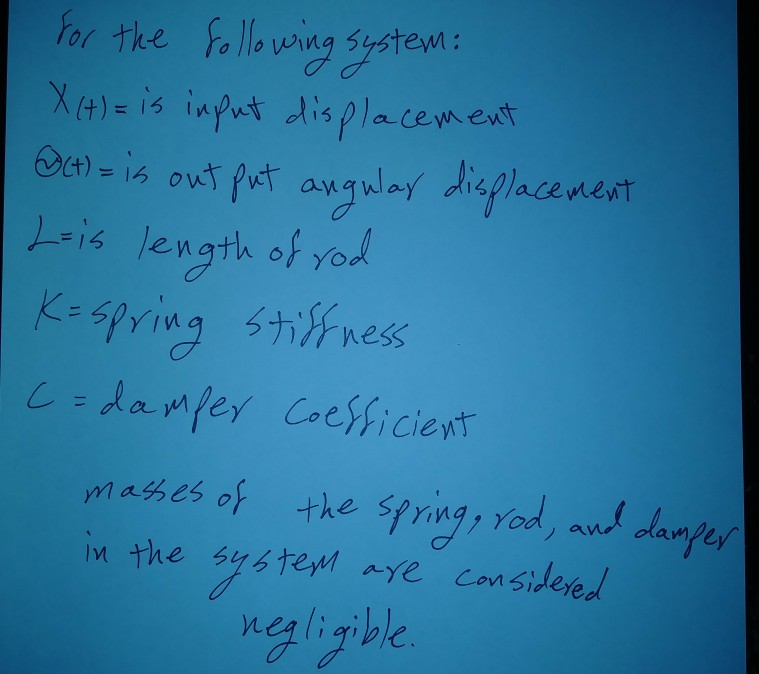 For the following system:
X(t) = is input displacement
Θ(t) = is out put angular displacement
L = is length of rod
K = spring stiffness
C = damper coefficient
masses of the spring, rod, and damper
in the system are considered
negligible.